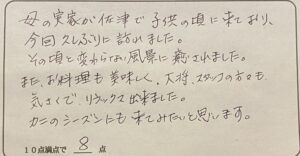 母の実家が佐津で子供の頃に来ており、
今回久しぶりに訪れました。
その頃と変わらない風景に癒されました。
また、お料理も美味しく、大将、スタッフの方々も、
気さくで、リラックス出来ました。
カニのシーズンにも来てみたいと思います。
10点満点で 8 点